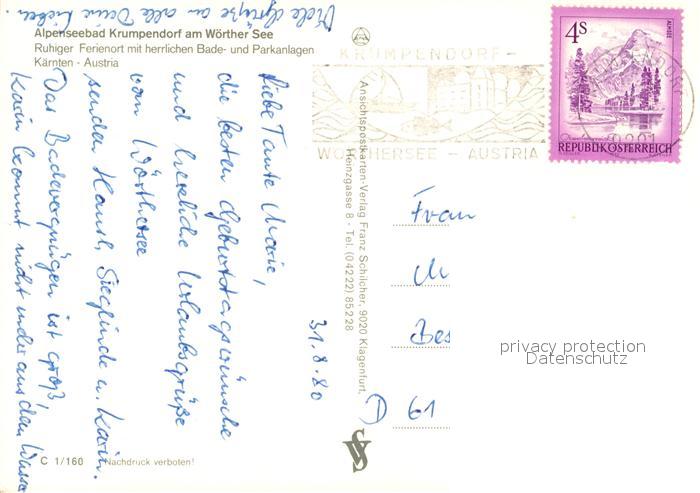 Alpenseebad Krumpendorf am Wörther See
Ruhiger Ferienort mit herrlichen Bade- und Parkanlagen
Kärnten - Austria
Viele Grüße an alle Deine Lieben.
Liebe Tante Marie,
die besten Geburtstagswünsche
und herzliche Urlaubsgrüße
vom Wörthersee
senden Hansl, Sieglinde u. Karin.
Das Badevergnügen ist groß,
Karin kommt nicht mehr aus dem Wasser
31.8.80
C 1/160 Nachdruck verboten!
Ansichtspostkarten-Verlag Franz Schilcher, 9020 Klagenfurt,
Heinzgasse 8 - Tel. (04222) 85228
KRUMPENDORF -
WÖRTHERSEE - AUSTRIA
4S
ALMSEE
REPUBLIK ÖSTERREICH
9201
Frau
M
Bes
D 61
privacy protection
Datenschutz